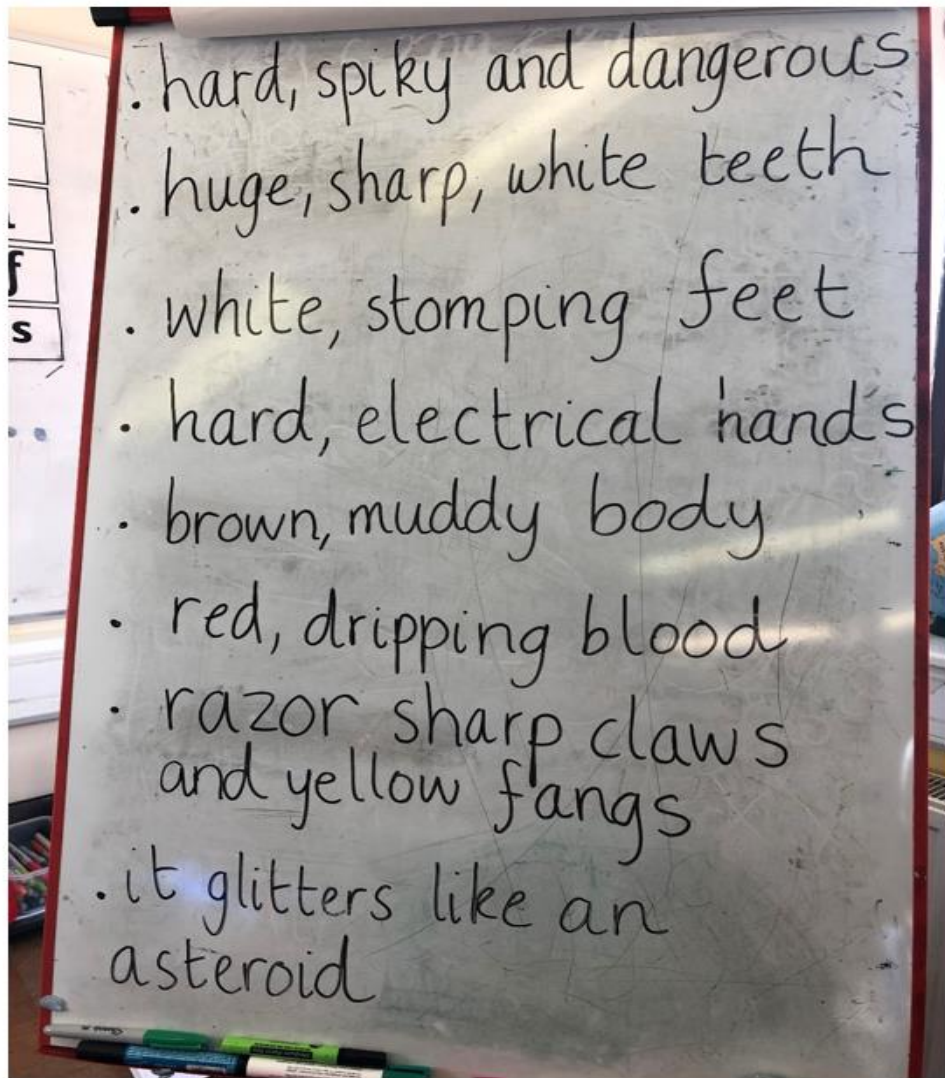 . hard, spiky and dangerous
. huge, sharp, white teeth
. white, stomping feet
. hard, electrical hands
. brown, muddy body
. red, dripping blood
. razor sharp claws
and yellow fangs
. it glitters like an
asteroid
f
s